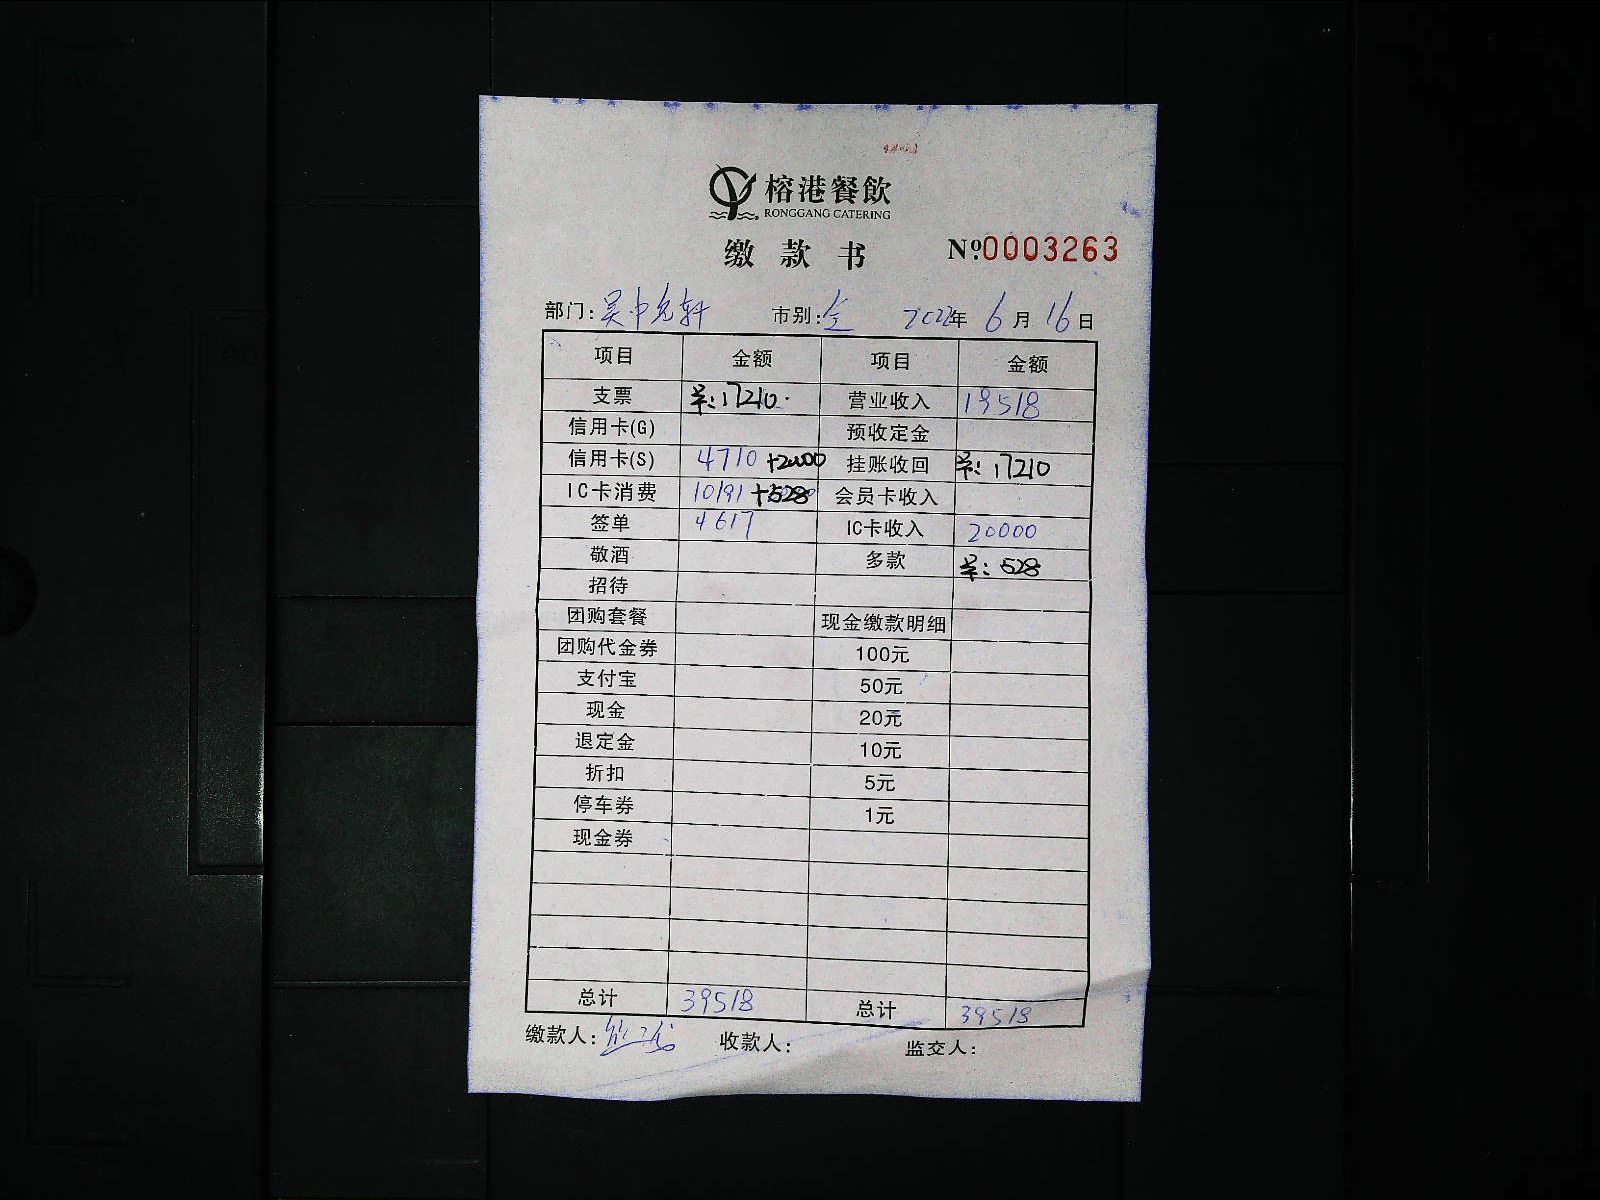 榕港餐飲
RONGGANG CATERING
缴款书 №0003263
部门: 吴中 轩 市别: 全 2022年 6月 16日
项目 金额 项目 金额
支票 单: 17210. 营业收入 19518
信用卡(G) 预收定金
信用卡(S) 4710 +20000 挂账收回 单: 17210
IC卡消费 10191 +528 会员卡收入
签单 4617 IC卡收入 20000
敬酒 多款 单: 528
招待
团购套餐 现金缴款明细
团购代金券 100元
支付宝 50元
现金 20元
退定金 10元
折扣 5元
停车券 1元
现金券
总计 39518 总计 39518
缴款人: 收款人: 监交人: